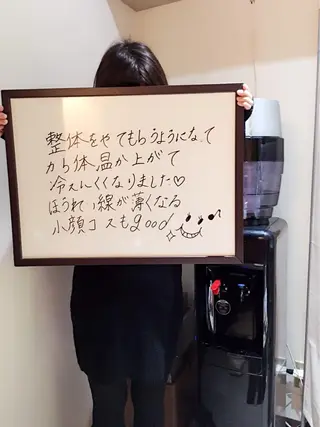 整体をやてもらうようになって
から体温が上がて
冷えにくくなりました♡
ほうれい線が薄くなる
小顔コースもgood